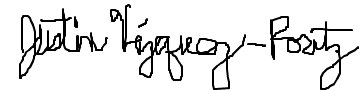 Justin Vázquez-Poritz